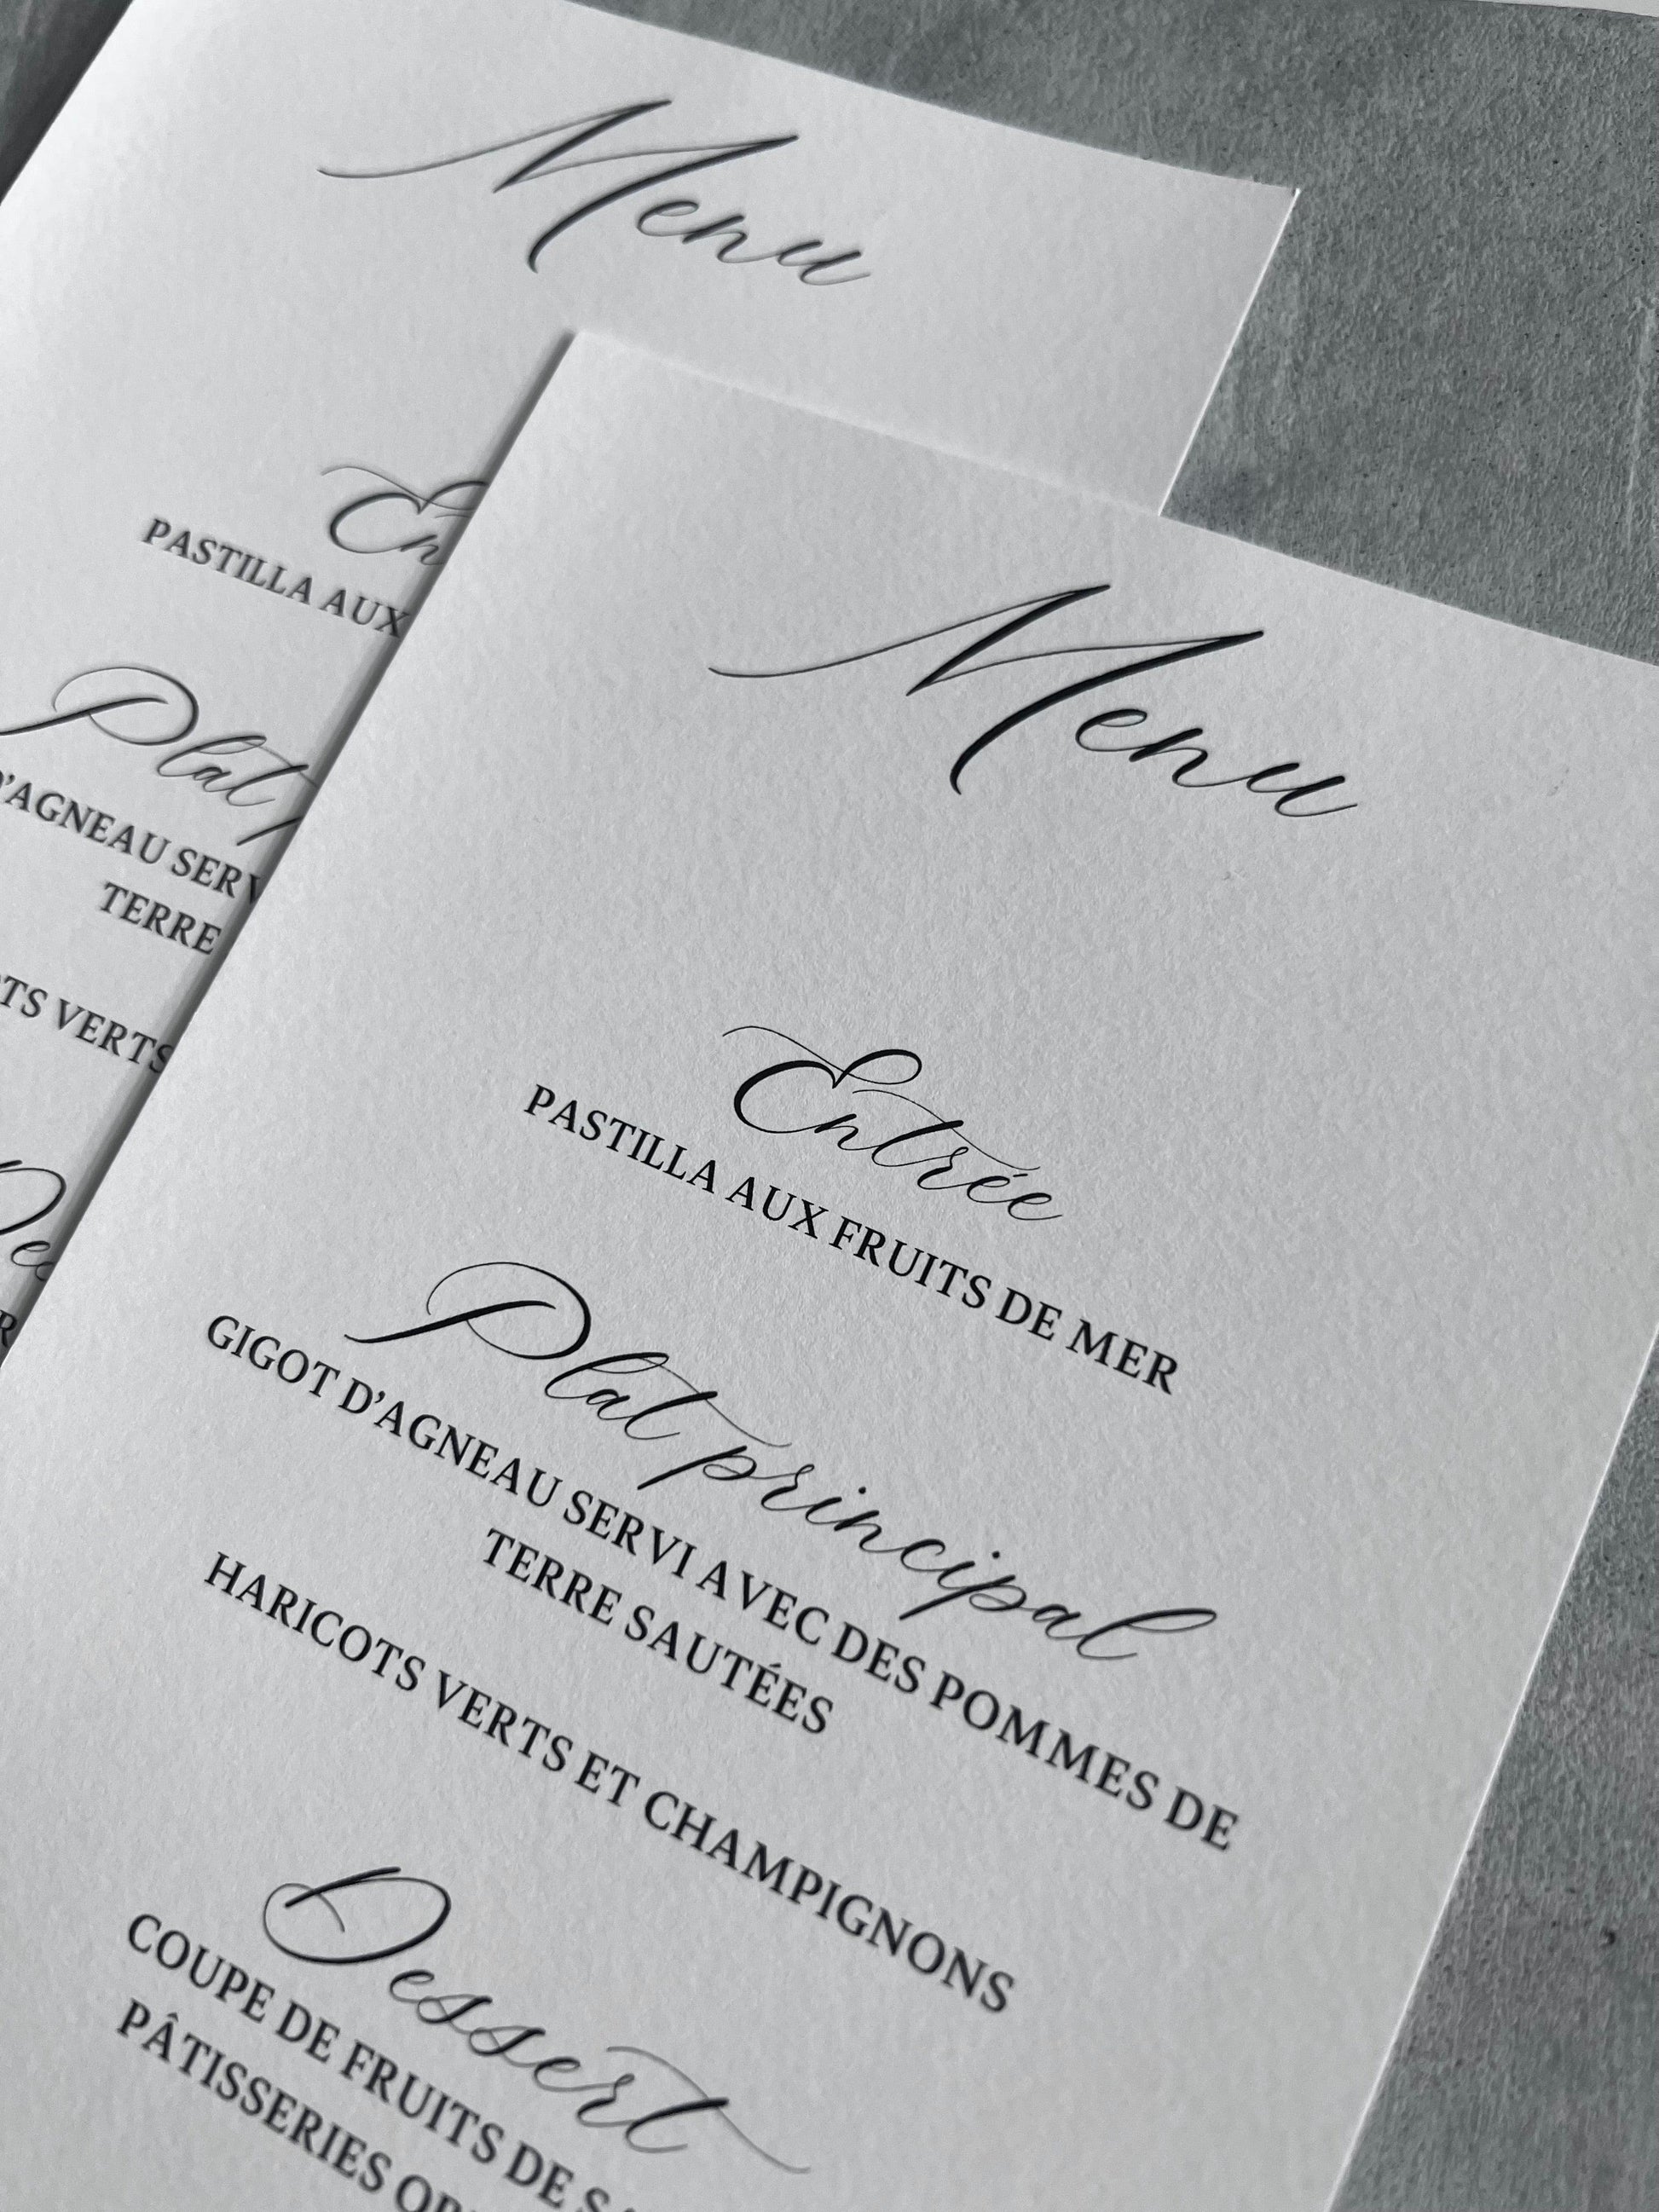 Menu
En
PASTILLA AUX
Plat
D'AGNEAU SERV
TERRE
TS VERTS
De
Menu
Entrée
PASTILLA AUX FRUITS DE MER
Plat principal
GIGOT D'AGNEAU SERVI AVEC DES POMMES DE
TERRE SAUTÉES
HARICOTS VERTS ET CHAMPIGNONS
Dessert
COUPE DE FRUITS DE
PÂTISSERIES